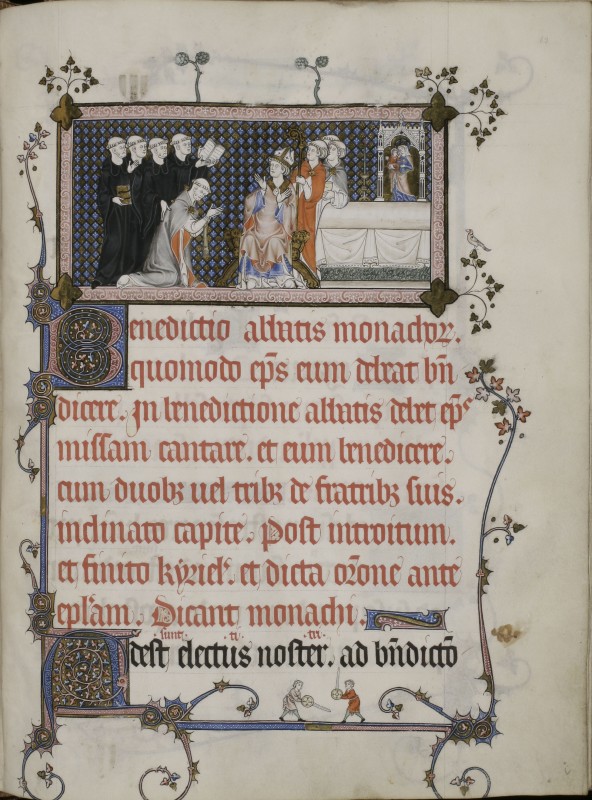 Benedictio abbatis monachoꝝ.
quomodo ep̄s eum debeat bn̄
dicere. In benedictione abbatis debet ep̄s
missam cantare. et eum benedicere.
cum duobꝫ uel tribꝫ de fratribꝫ suis.
inclinato capite. Post introitum.
et finito kẏriel'. et dicta or̄one ante
ep̄l'am. Dicant monachi.
sunt. ti. tri.
Adest electus noster. ad bn̄dictō